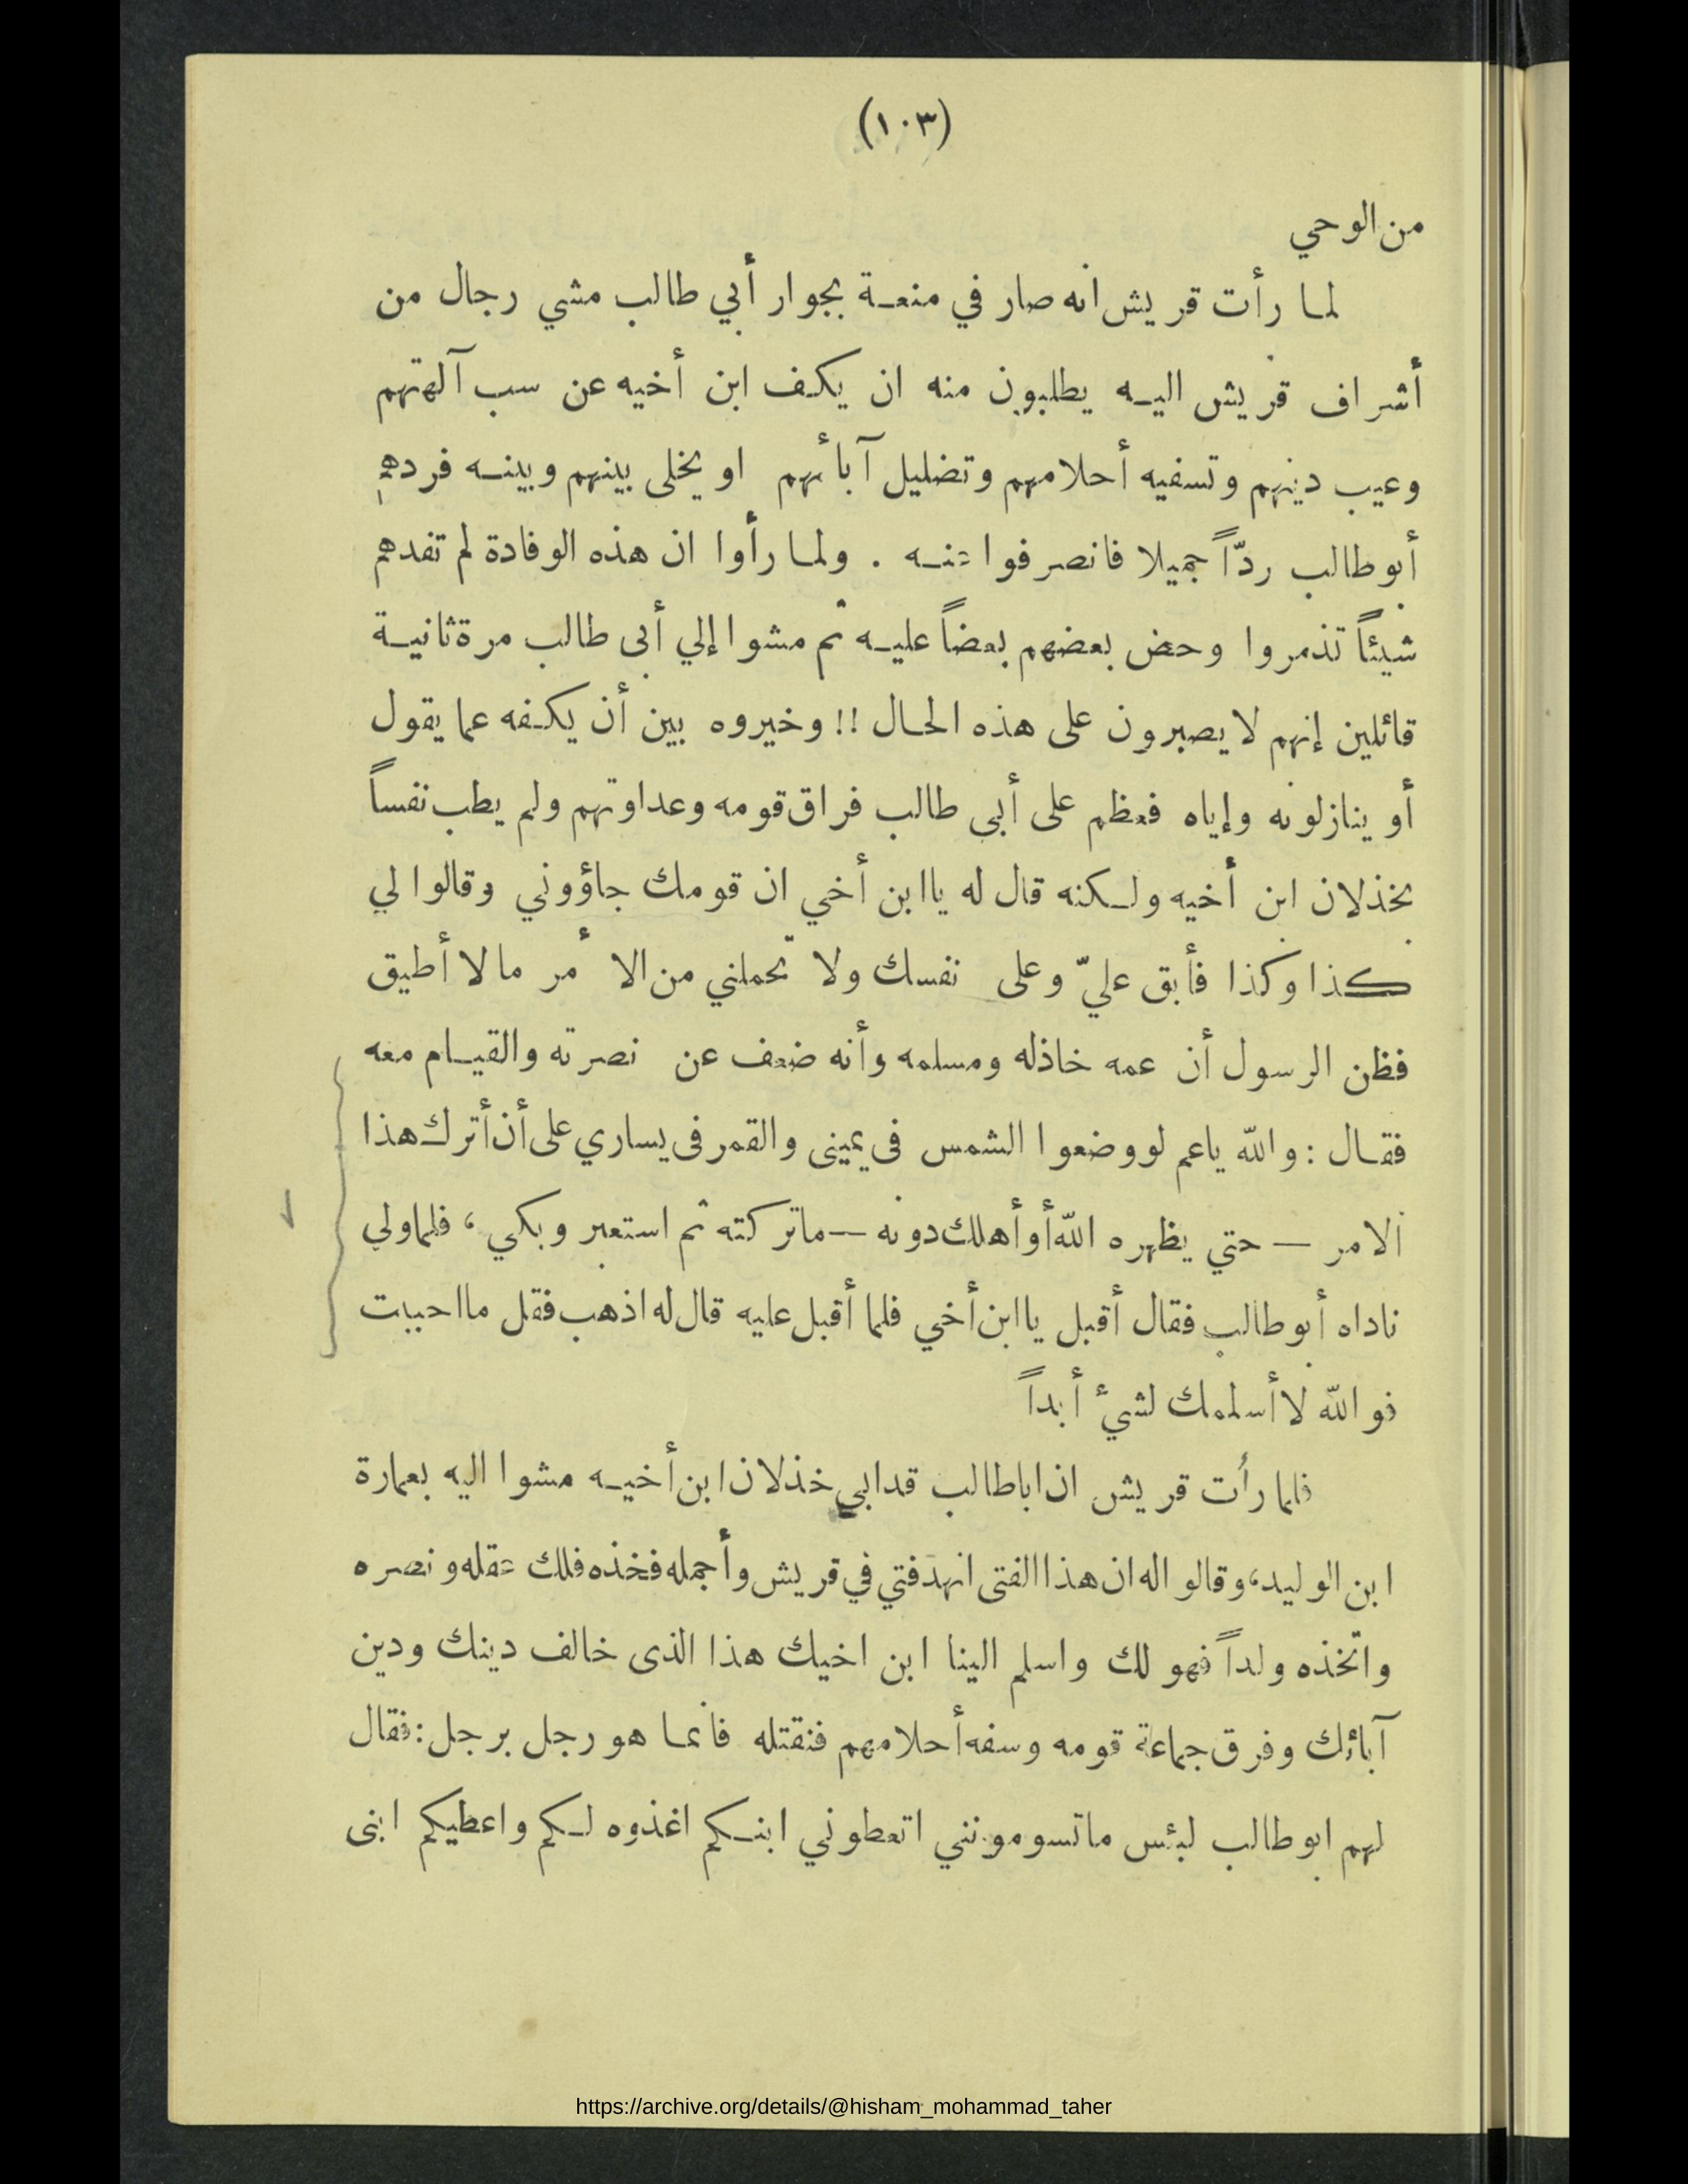 (١٠٣)
من الوحي
لما رأت قريش انه صار في منعة بجوار أبي طالب مشي رجال من
أشراف قريش اليه يطلبون منه ان يكف ابن أخيه عن سب آلهتهم
وعيب دينهم وتسفيه أحلامهم وتضليل آبائهم او يخلى بينهم وبينه فردهم
أبو طالب ردّاً جميلا فانصرفوا عنه . ولما رأوا ان هذه الوفادة لم تفدهم
شيئاً تذمروا وحض بعضهم بعضاً عليه ثم مشوا إلي أبى طالب مرة ثانية
قائلين إنهم لا يصبرون على هذه الحال !! وخيروه بين أن يكفه عما يقول
أو ينازلونه وإياه فعظم على أبى طالب فراق قومه وعداوتهم ولم يطب نفساً
بخذلان ابن أخيه ولكنه قال له يا ابن أخي ان قومك جاؤوني وقالوا لي
كذا وكذا فأبق عليّ وعلى نفسك ولا تحملني من الأمر ما لا أطيق
فظن الرسول أن عمه خاذله ومسلمه وأنه ضعف عن نصرته والقيام معه
فقال : والله ياعم لو وضعوا الشمس فى يمينى والقمر فى يساري على أن أترك هذا
الامر — حتي يظهره الله أو أهلك دونه — ما تركته ثم استعبر وبكي ، فلما ولي
ناداه أبو طالب فقال أقبل يا ابن أخي فلما أقبل عليه قال له اذهب فقل ما احببت
فو الله لا أسلمك لشيء أبداً
فلما رأت قريش ان ابا طالب قد ابي خذلان ابن أخيه مشوا اليه بعمارة
ابن الوليد، وقالوا له ان هذا الفتى انهد فتي في قريش وأجمله فخذه فلك عقله ونصره
واتخذه ولداً فهو لك واسلم الينا ابن اخيك هذا الذى خالف دينك ودين
آبائك وفرق جماعة قومه وسفه أحلامهم فنقتله فانما هو رجل برجل : فقال
لهم ابو طالب لبئس ما تسومونني اتعطوني ابنكم اغذوه لكم واعطيكم ابنى
https://archive.org/details/@hisham_mohammad_taher